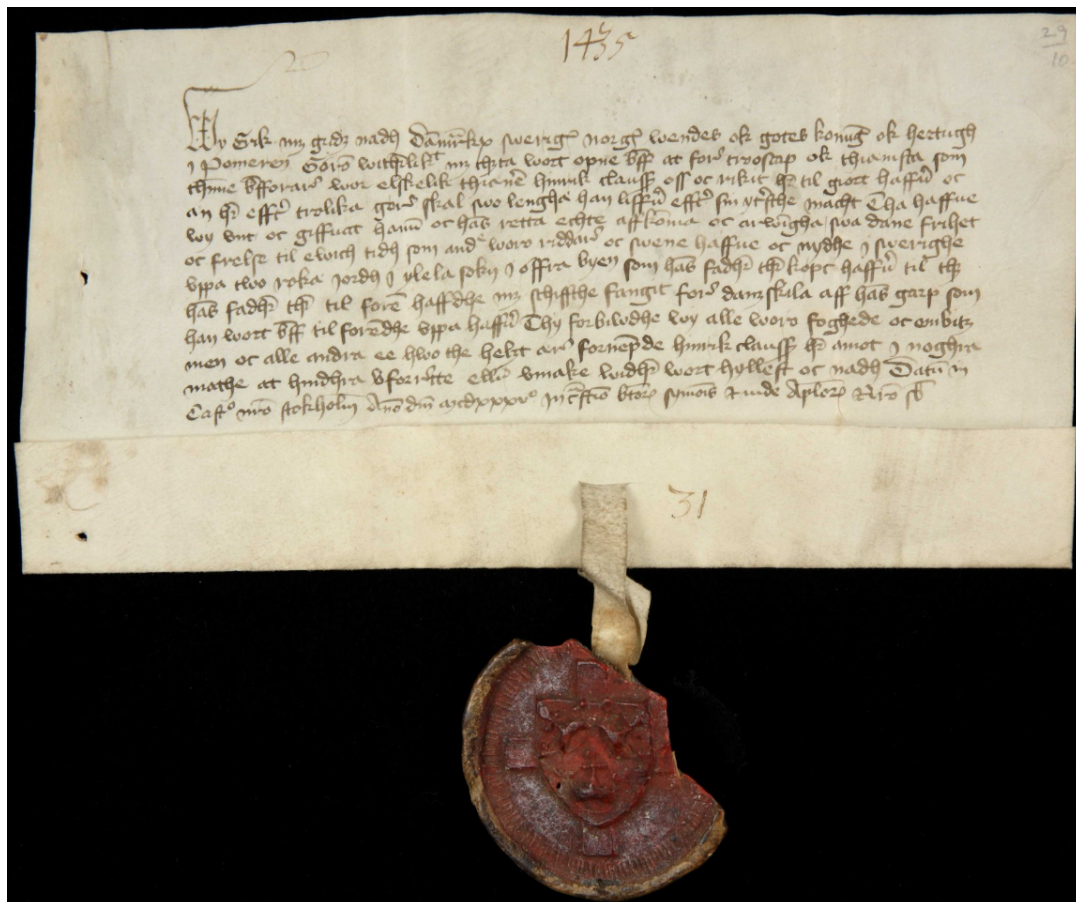 1435
29
10
Wy Erik mz gudz nadh Danmarkx swerigs norgs wendes ok gotes konung ok hertugh
i Pomeren Görom witherlikt mz thetta wort opne bff at for trooscap ok thianista som
thenne bfforare wor elskelik thienere hinrik clauss oss oc rikit her til giort haffuer oc
än her effter trolika göre skal swo lengha han liffuer effter sin yterste macht Tha haffue
wy vnt oc giffuit hanum oc hans retta echte affkoma oc arwingha swa dane frihet
oc frelse til ewich tidh som andre wore riddare oc swene haffue oc nydhe i swerighe
vppa two röka jordh i ylela sokn i offra byen som hans fadher ther köpt haffuer til thz
hans fadher ther til foren haffdhe mz schiffthe fangit for danzskila aff hans garp som
han wort bff til foredhe vppa haffuer Thy forbiwdhe wy alle wore foghede oc embitz
men oc alle andra ee hwo the helzt äre fornempde hinrik clauss her amot i noghra
mathe at hindhra vforrette eller vmake widher wort hyllest oc nadh Datum in
Castro nostro stokholm Anno dni mcdxxxv in crastino btorum symonis et iude Aplorum nostro sb
31